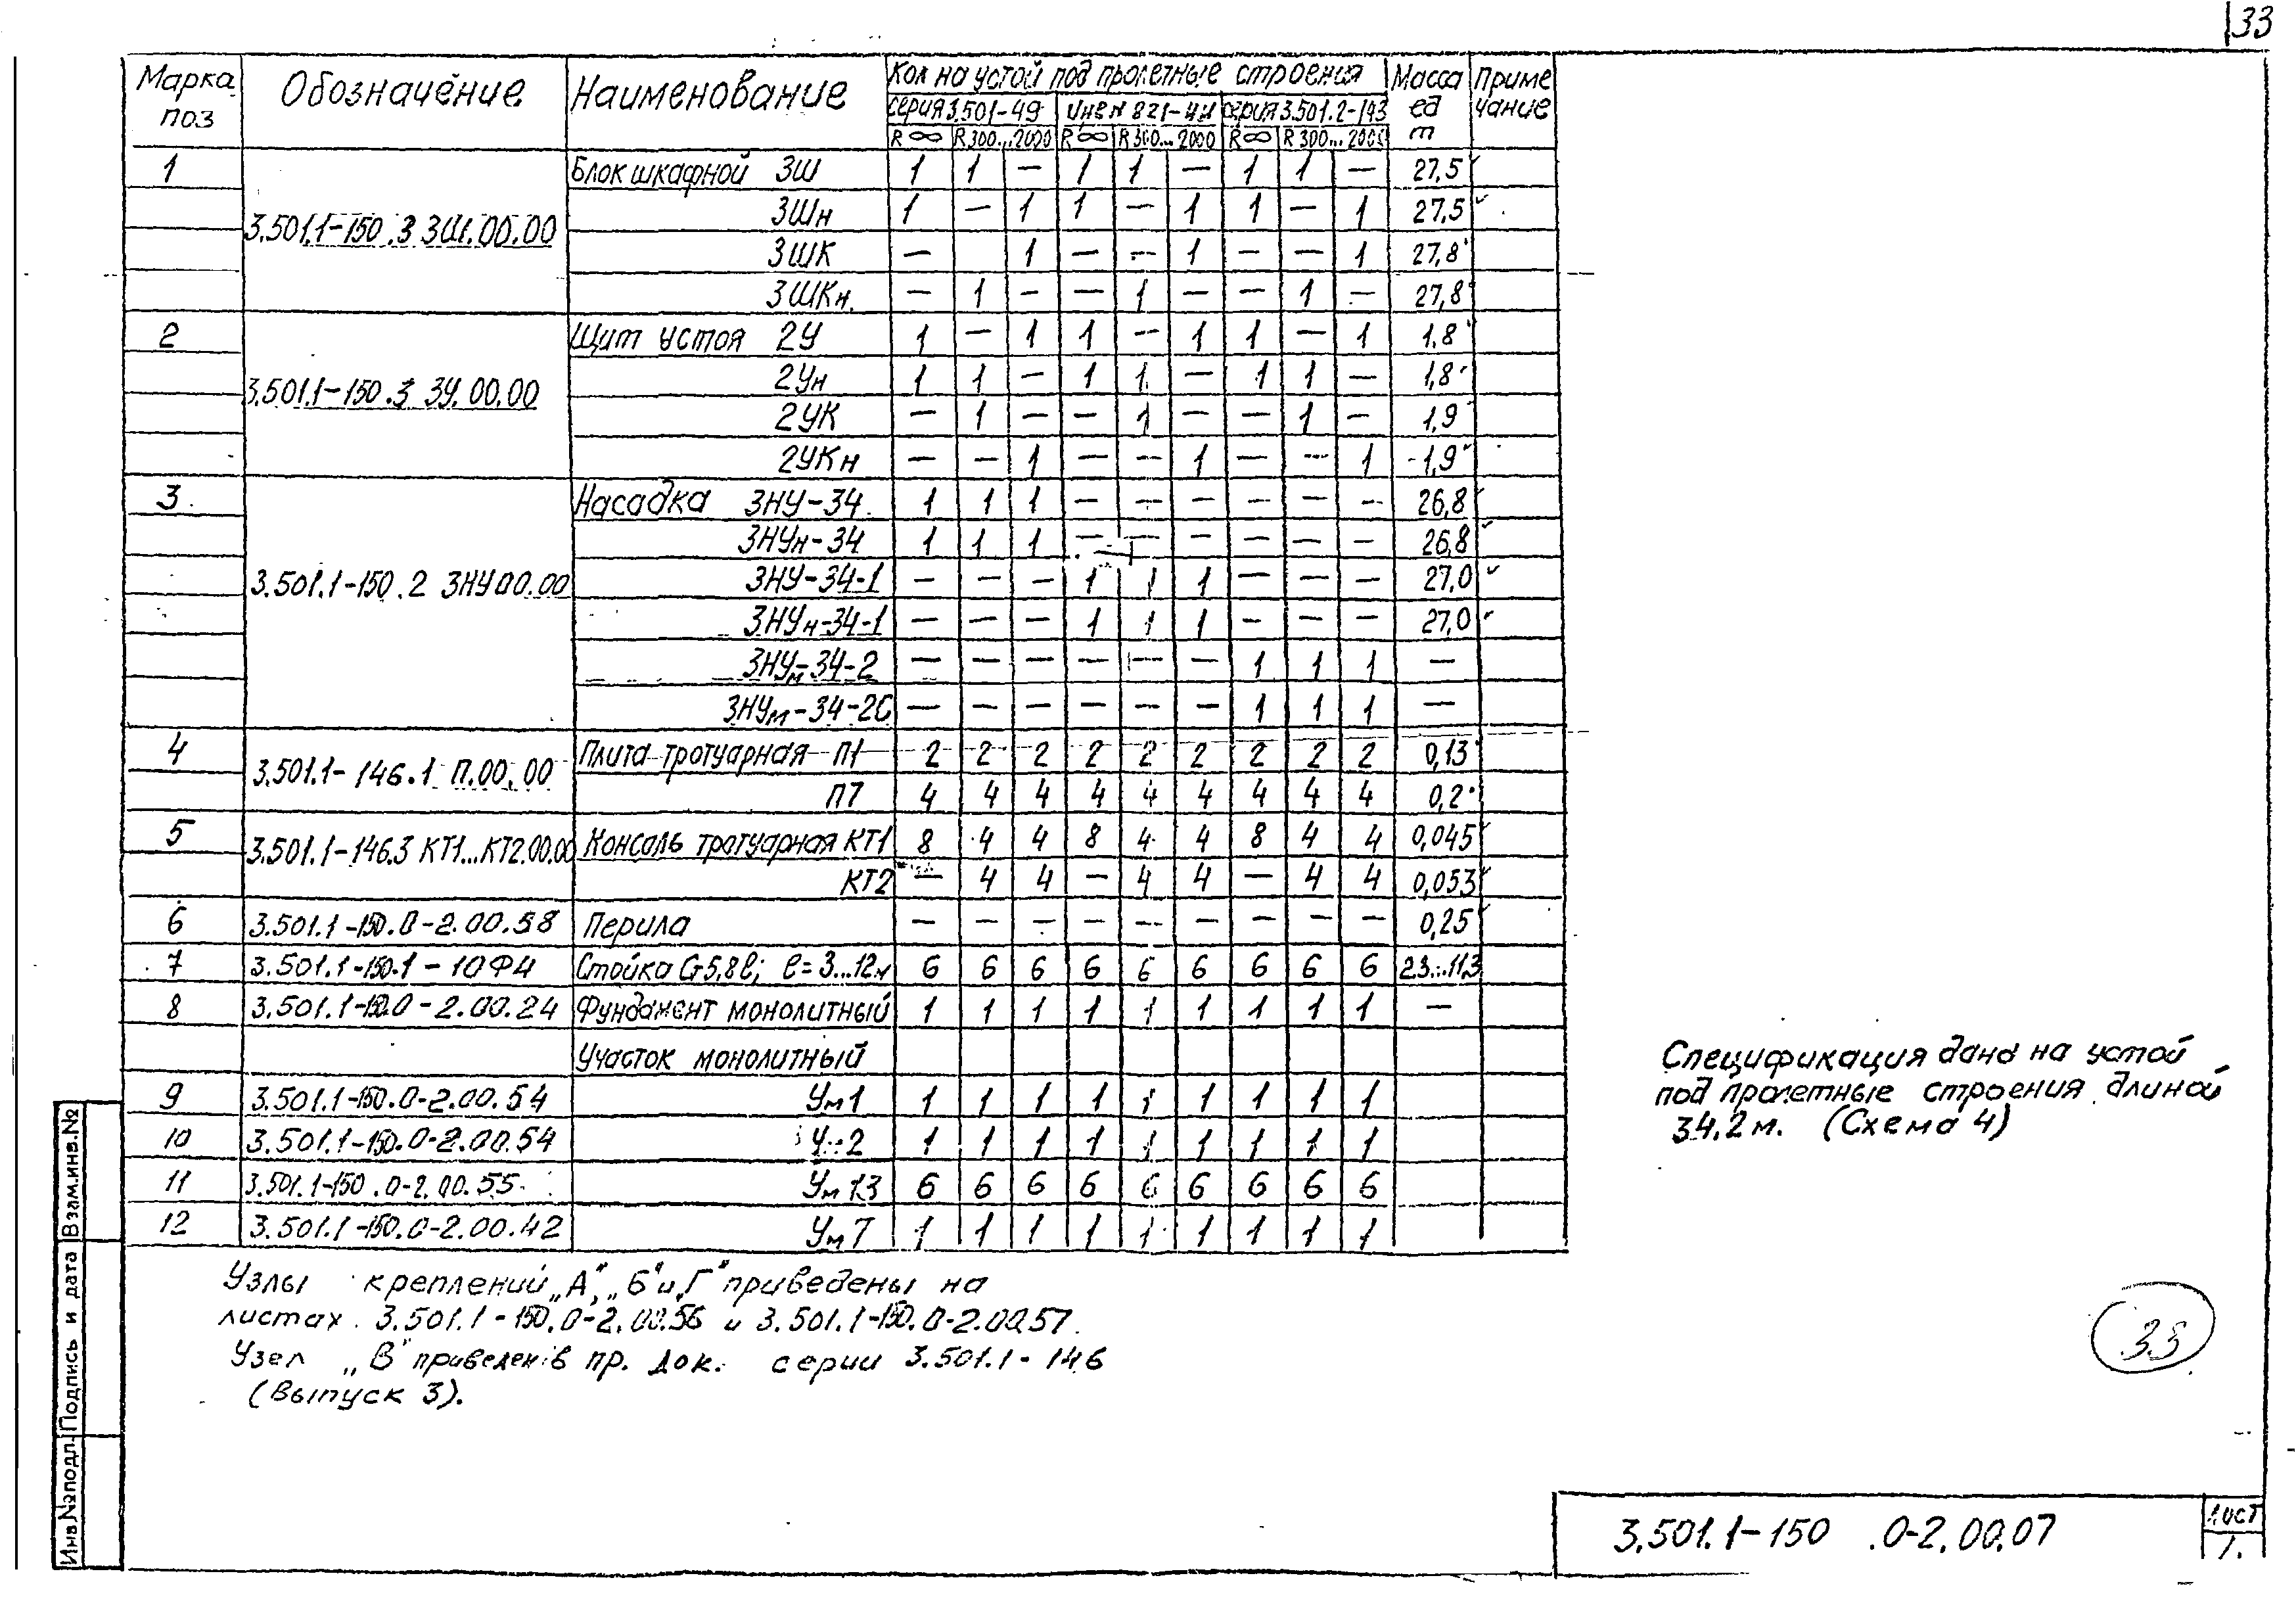 33
Марка поз Обозначение Наименование Кол на устой под пролетные строения Масса ед т Примечание
серия 3.501-49 инв N 821- серия 3.501.2-143
R∞ R300...2000 R∞ R300...2000 R∞ R300...2000
1 3.501.1-150.3 3Ш.00.00 Блок шкафной 3Ш 1 1 — 1 1 — 1 1 — 27,5
3Шн 1 — 1 1 — 1 1 — 1 27,5
3ШК — 1 — — 1 — — 1 27,8
3ШКн. — 1 — — 1 — — 1 — 27,8
2 3.501.1-150.3 3У.00.00 Щит устоя 2У 1 — 1 1 — 1 1 — 1 1,8
2Ун 1 1 — 1 1 — 1 1 — 1,8
2УК — 1 — — 1 — — 1 — 1,9
2УКн — — 1 — — 1 — — 1 1,9
3 3.501.1-150.2 3НУ00.00 Насадка 3НУ-34 1 1 1 — — — — — — 26,8
3НУн-34 1 1 1 — — — — — — 26,8
3НУ-34-1 — — — 1 1 1 — — — 27,0
3НУн-34-1 — — — 1 1 1 — — — 27,0
3НУм-34-2 — — — — — — 1 1 1 —
3НУм-34-2С — — — — — — 1 1 1 —
4 3.501.1-146.1 П.00.00 Плита тротуарная П1 2 2 2 2 2 2 2 2 2 0,13
П7 4 4 4 4 4 4 4 4 4 0,2
5 3.501.1-146.3 КТ1...КТ2.00.00 Консоль тротуарная КТ1 8 4 4 8 4 4 8 4 4 0,045
КТ2 — 4 4 — 4 4 — 4 4 0,053
6 3.501.1-150.0-2.00.58 Перила — — — — — — — — — 0,25
7 3.501.1-150.1-10Ф4 Стойка С5,8ℓ; ℓ=3...12м 6 6 6 6 6 6 6 6 6 2.3...11,3
8 3.501.1-150.0-2.00.24 Фундамент монолитный 1 1 1 1 1 1 1 1 1 —
Участок монолитный
9 3.501.1-150.0-2.00.54 Ум1 1 1 1 1 1 1 1 1 1
10 3.501.1-150.0-2.00.54 2 1 1 1 1 1 1 1 1 1
11 3.501.1-150.0-2.00.55 Ум13 6 6 6 6 6 6 6 6 6
12 3.501.1-150.0-2.00.42 Ум7 1 1 1 1 1 1 1 1 1
Спецификация дана на устой
под пролетные строения длиной
34.2м. (Схема 4)
Узлы креплений „А", „Б" и „Г" приведены на
листах 3.501.1-150.0-2.00.56 и 3.501.1-150.0-2.00.57.
Узел „В" приведен в пр. док. серии 3.501.1-146
(Выпуск 3).
33
Инв.№подл. Подпись и дата Взам.инв.№
3.501.1-150 .0-2.00.07
Лист
1.